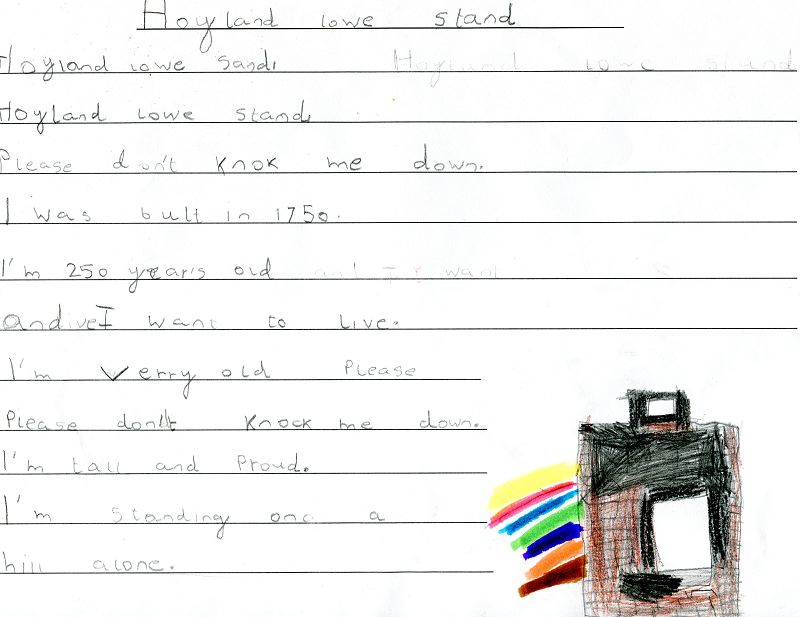 Hoyland lowe stand
Hoyland lowe sand Hoyland lowe stand
Hoyland lowe stand
Please don't knok me down.
I was bult in 1750.
I'm 250 years old and I want
and I want to live.
I'm verry old Please
Please don't knock me down.
I'm tall and Proud.
I'm standing on a
hill alone.